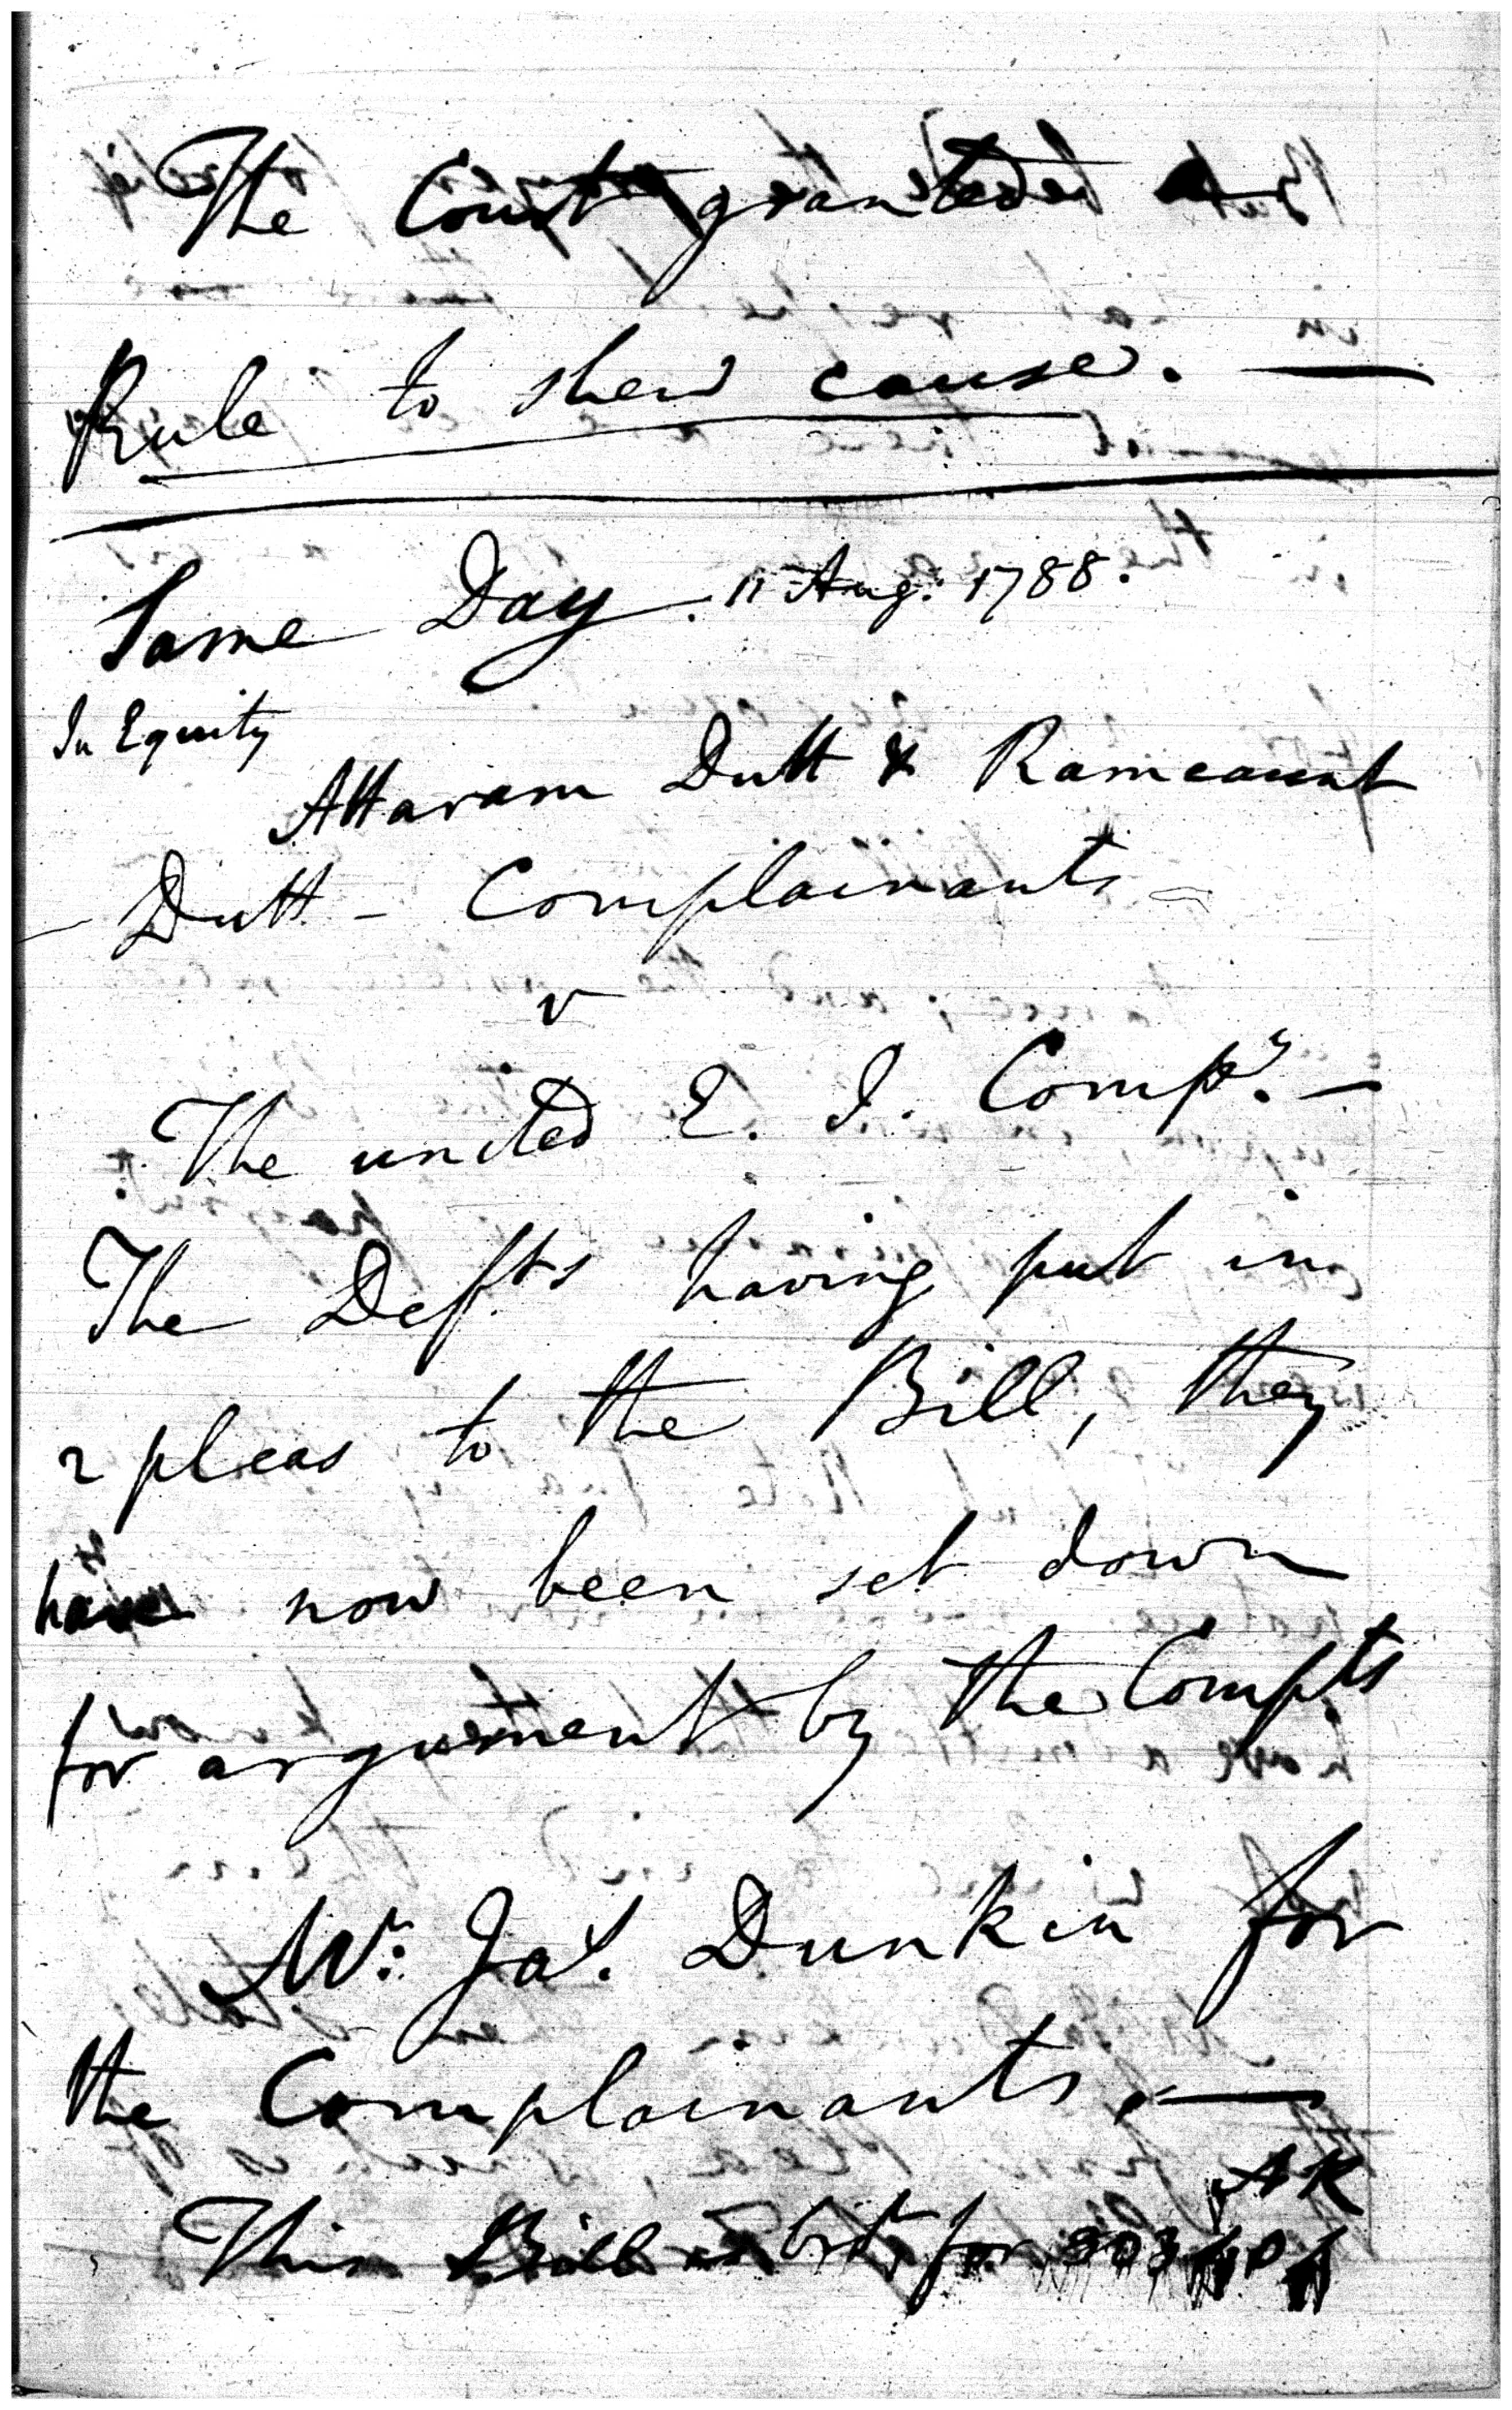 The Court granted a
Rule to shew cause. —
Same Day. 11 Aug: 1788.
In Equity
Attaram Dutt & Ramcaunt
Dutt - Complainants -
v
The united E. I. Compy. —
The Defts having put in
2 pleas to the Bill, they
have now been set down
for argument by the Compts
Mr. Jas. Dunkin for
the Complainants. —
This Bill is brt. for